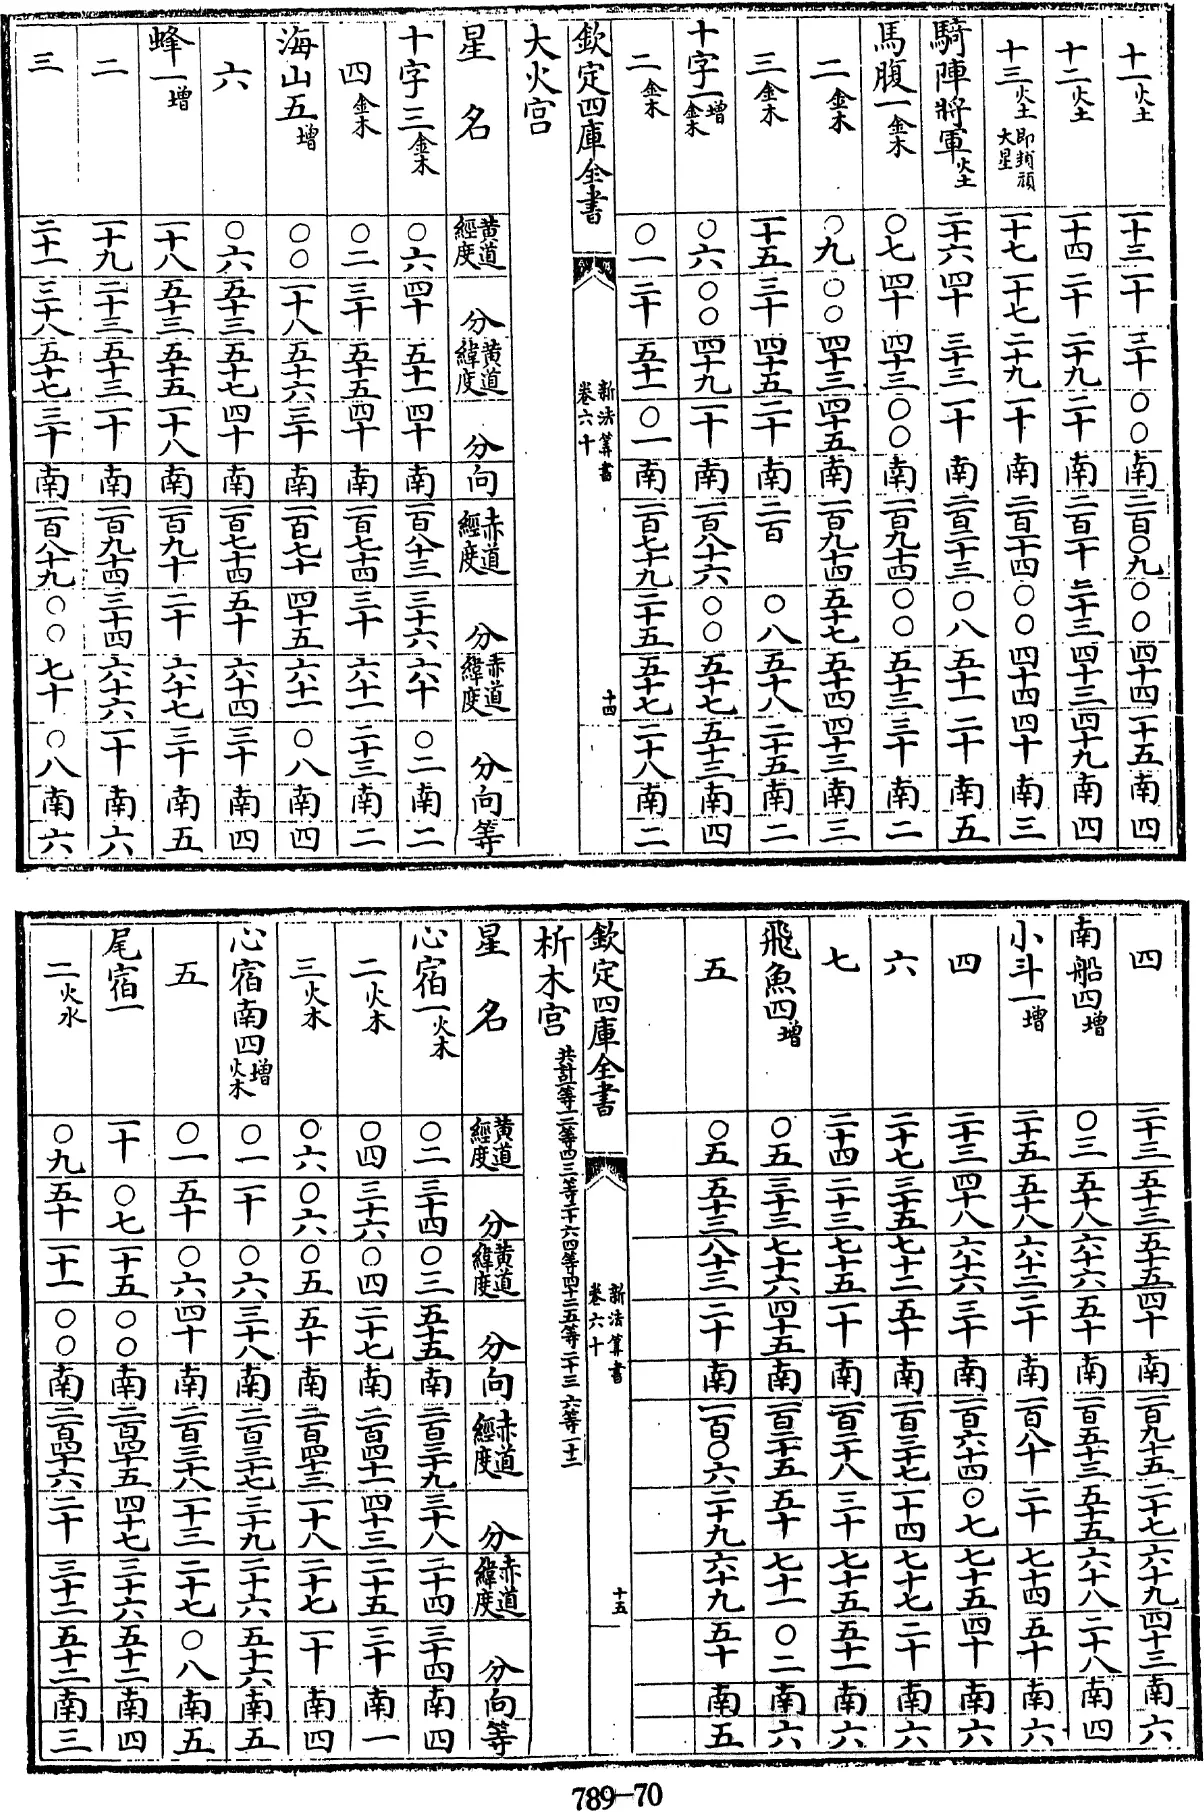 十一火土 一十三 一十 三十 〇〇 南 二百〇九 〇〇 四十四 一十五 南 四
十二火土 一十四 二十 二十九 二十 南 二百一十 三十三 四十三 四十九 南 四
十三火土 即 頑大星 一十七 一十七 二十九 一十 南 二百一十四 〇〇 四十四 四十 南 三
騎陣將軍火土 二十六 四十 三十三 一十 南 二百二十三 〇八 五十一 二十 南 五
馬腹一金木 〇七 四十 四十三 〇〇 南 一百九十四 〇〇 五十三 三十 南 二
二金木 〇九 〇〇 四十三 四十五 南 一百九十四 五十七 五十四 四十三 南 三
三金木 一十五 三十 四十五 二十 南 二百 〇八 五十八 二十五 南 二
十字一增金木 〇六 〇〇 四十九 一十 南 一百八十六 〇〇 五十七 五十三 南 四
二金木 〇一 二十 五十一 〇一 南 一百七十九 二十五 五十七 二十八 南 二
欽定四庫全書 新法算書 卷六十 十四
大火宫
星名 黄道經度 分 黄道緯度 分 向 赤道經度 分 赤道緯度 分 向 等
十字三金木 〇六 四十 五十一 四十 南 一百八十三 三十六 六十 〇二 南 二
四金木 〇二 三十 五十五 四十 南 一百七十四 三十 六十一 二十三 南 二
海山五增 〇〇 一十八 五十六 三十 南 一百七十 四十五 六十一 〇八 南 四
六 〇六 五十三 五十七 四十 南 一百七十四 五十 六十四 三十 南 四
蜂一增 一十八 五十三 五十五 一十八 南 一百九十 二十 六十七 三十 南 五
二 一十九 二十三 五十三 一十 南 一百九十四 三十四 六十六 一十 南 六
三 二十一 三十八 五十七 三十 南 一百八十九 〇〇 七十 〇八 南 六
四 二十三 五十三 五十五 四十 南 一百九十五 二十七 六十九 四十三 南 六
南船四增 〇三 五十八 六十六 五十 南 一百五十三 五十五 六十八 二十八 南 四
小斗一增 二十五 五十八 六十二 二十 南 一百八十 二十 七十四 五十 南 六
四 二十三 四十八 六十六 三十 南 一百六十四 〇七 七十五 四十 南 六
六 二十七 三十五 七十二 五十 南 一百二十七 一十四 七十七 二十 南 六
七 二十四 二十三 七十五 一十 南 一百二十八 三十 七十五 五十一 南 六
飛魚四增 〇五 三十三 七十六 四十五 南 一百二十五 五十 七十一 〇二 南 六
五 〇五 五十三 八十三 二十 南 一百〇六 二十九 六十九 五十 南 五
欽定四庫全書 新法算書 卷六十 十五
析木宫 共計一等一二等四三等二十六四等四十二五等二十三六等一十二
星名 黄道經度 分 黄道緯度 分 向 赤道經度 分 赤道緯度 分 向 等
心宿一火木 〇二 三十四 〇三 五十五 南 二百三十九 三十八 二十四 三十四 南 四
二火木 〇四 三十六 〇四 二十七 南 二百四十一 四十三 二十五 三十 南 一
三火木 〇六 〇六 〇五 五十 南 二百四十三 一十八 二十七 一十 南 四
心宿南四增火木 〇一 一十 〇六 三十八 南 二百三十七 三十九 二十六 五十六 南 五
五 〇一 五十 〇六 四十 南 二百三十八 一十三 二十七 〇八 南 五
尾宿一 一十 〇七 一十五 〇〇 南 二百四十五 四十七 三十六 五十二 南 四
二火水 〇九 五十 一十一 〇〇 南 二百四十六 二十 三十二 五十二 南 三
789-70